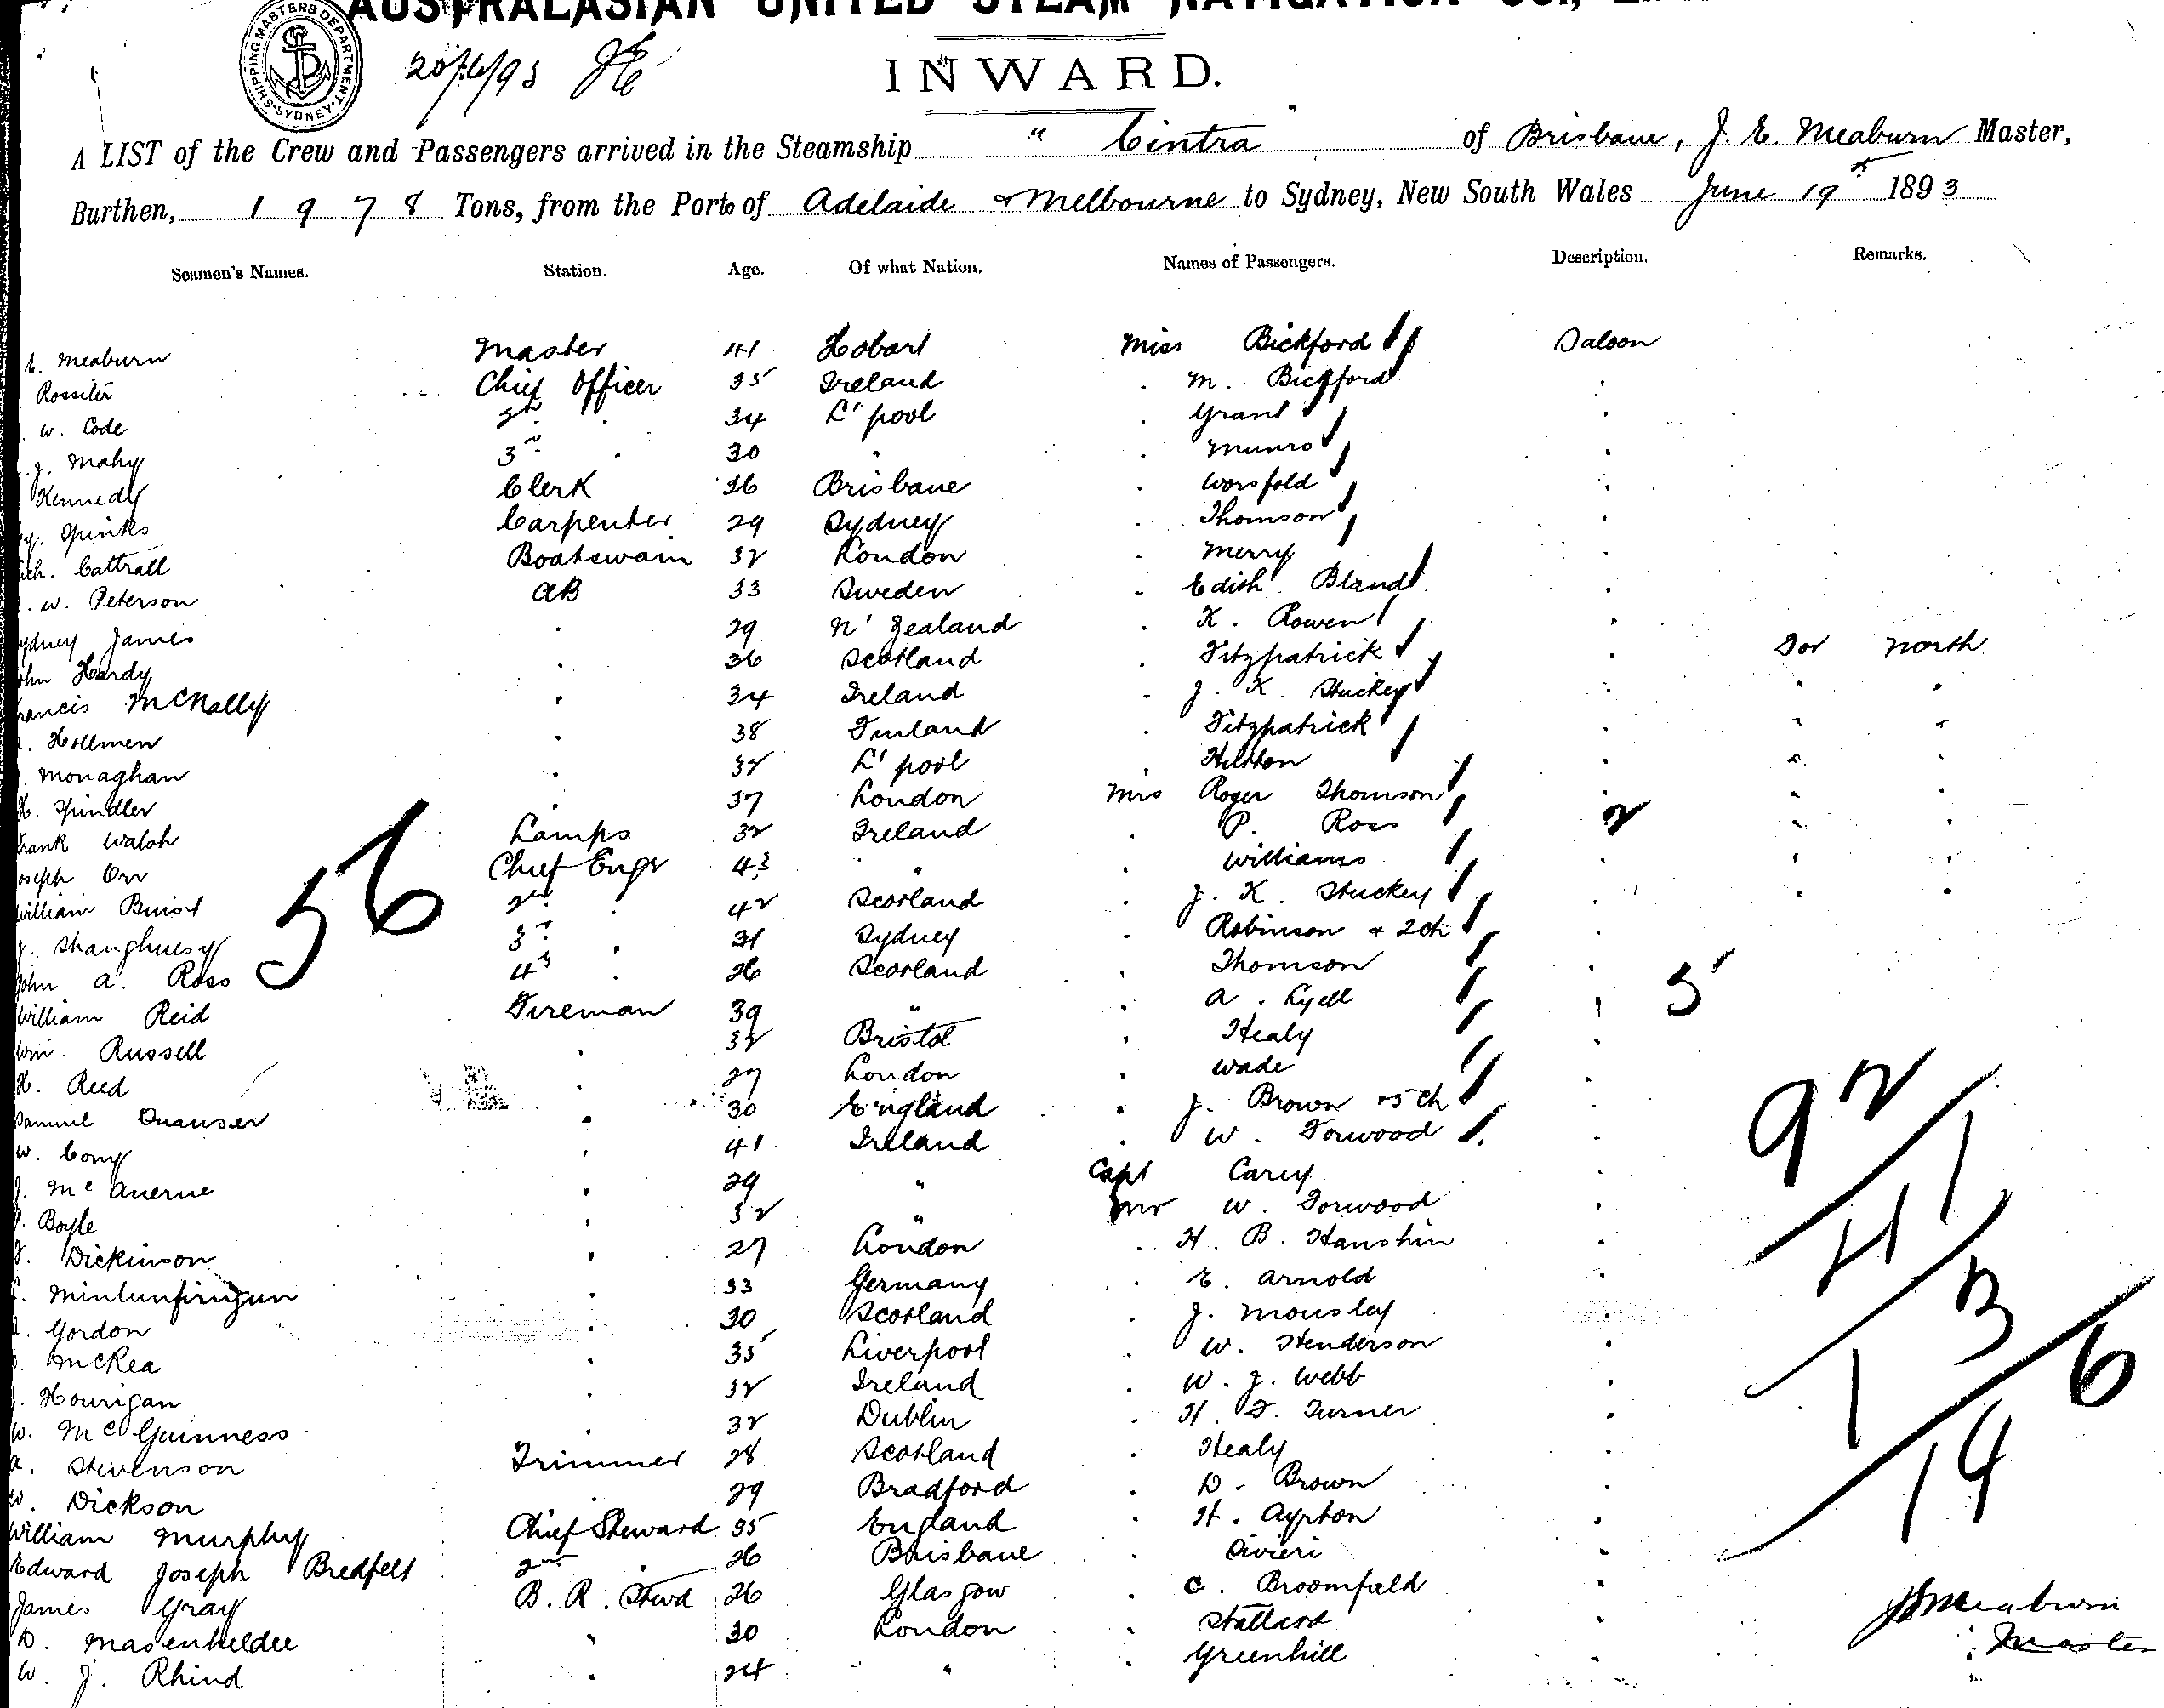 AUSTRALASIAN UNITED STEAM NAVIGATION CO.,
SHIPPING MASTERS DEPARTMENT. SYDNEY
20/6/93
INWARD.
A LIST of the Crew and Passengers arrived in the Steamship " Cintra " of Brisbane, J. E. Meaburn Master,
Burthen, 1978 Tons, from the Port of Adelaide & Melbourne to Sydney, New South Wales June 19th 1893
Seamen's Names. Station. Age. Of what Nation. Names of Passengers. Description. Remarks.
E. Meaburn Master 41 Hobart Miss Bickford Saloon
Rossiter Chief Officer 35 Ireland . M. Bickford .
W. Code 2nd . 34 L'pool . Grant .
J. Mahy 3rd . 30 " . Munro .
Kennedy Clerk 36 Brisbane . Worsfold .
Spinks Carpenter 29 Sydney . Thomson .
Cattrall Boatswain 32 London . Merry .
W. Peterson AB 33 Sweden . Edith Bland .
ydney James . 29 N' Zealand . K. Rowen .
ohn Hardy . 36 Scotland . Fitzpatrick . For North
rancis McNally . 34 Ireland . J. K. Stuckey . " "
Hollmen . 38 Finland . Fitzpatrick . " "
Monaghan . 32 L'pool . Hutton . " "
H. Spindler . 37 London Mrs Roger Thomson . " "
rank Walsh Lamps 32 Ireland . P. Ross 2 " "
oseph Orr Chief Engr 43 " . Williams . " "
William Buist 2nd . 42 Scotland . J. K. Stuckey . " "
J. Shanghnesy 3rd . 31 Sydney . Robinson + 2 ch .
John A. Ross 4th . 26 Scotland . Thomson .
56
William Reid Fireman 39 " . A. Lyell . 5
Wm. Russell . 32 Bristol . Healy .
H. Reed . 27 London . Wade .
Samuel . 30 England . J. Brown + 5 ch .
W. Cony . 41 Ireland . W. Forwood .
J. Mc Anerne . 29 " Capt Carey .
Boyle . 32 " Mr W. Forwood .
Dickinson . 27 London . H. B. .
. 33 Germany . E. Arnold .
Gordon . 30 Scotland . J. Mousley .
McRea . 35 Liverpool . W. Henderson .
Hourigan . 32 Ireland . W. J. Webb .
W. McGuinness . 32 Dublin . H. F. Turner .
A. Stevenson Trimmer 28 Scotland . Healy .
W. Dickson . 29 Bradford . D. Brown .
William Murphy Chief Steward 35 England . H. Ayrton .
Edward Joseph Bredfelt 2nd . 26 Brisbane . Rivieri .
James Gray B. R. Stwd 26 Glasgow . C. Broomfield .
D. " 30 London . Stallard .
W. J. Rhind . 24 " . Greenhill .
92
41
1
3
1
6
14
J E Meaburn
Master